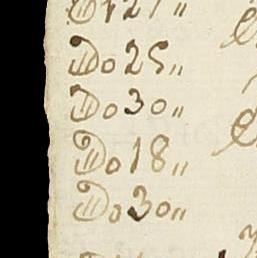 Do 25 "
Do 30 "
Do 18 "
Do 30 "